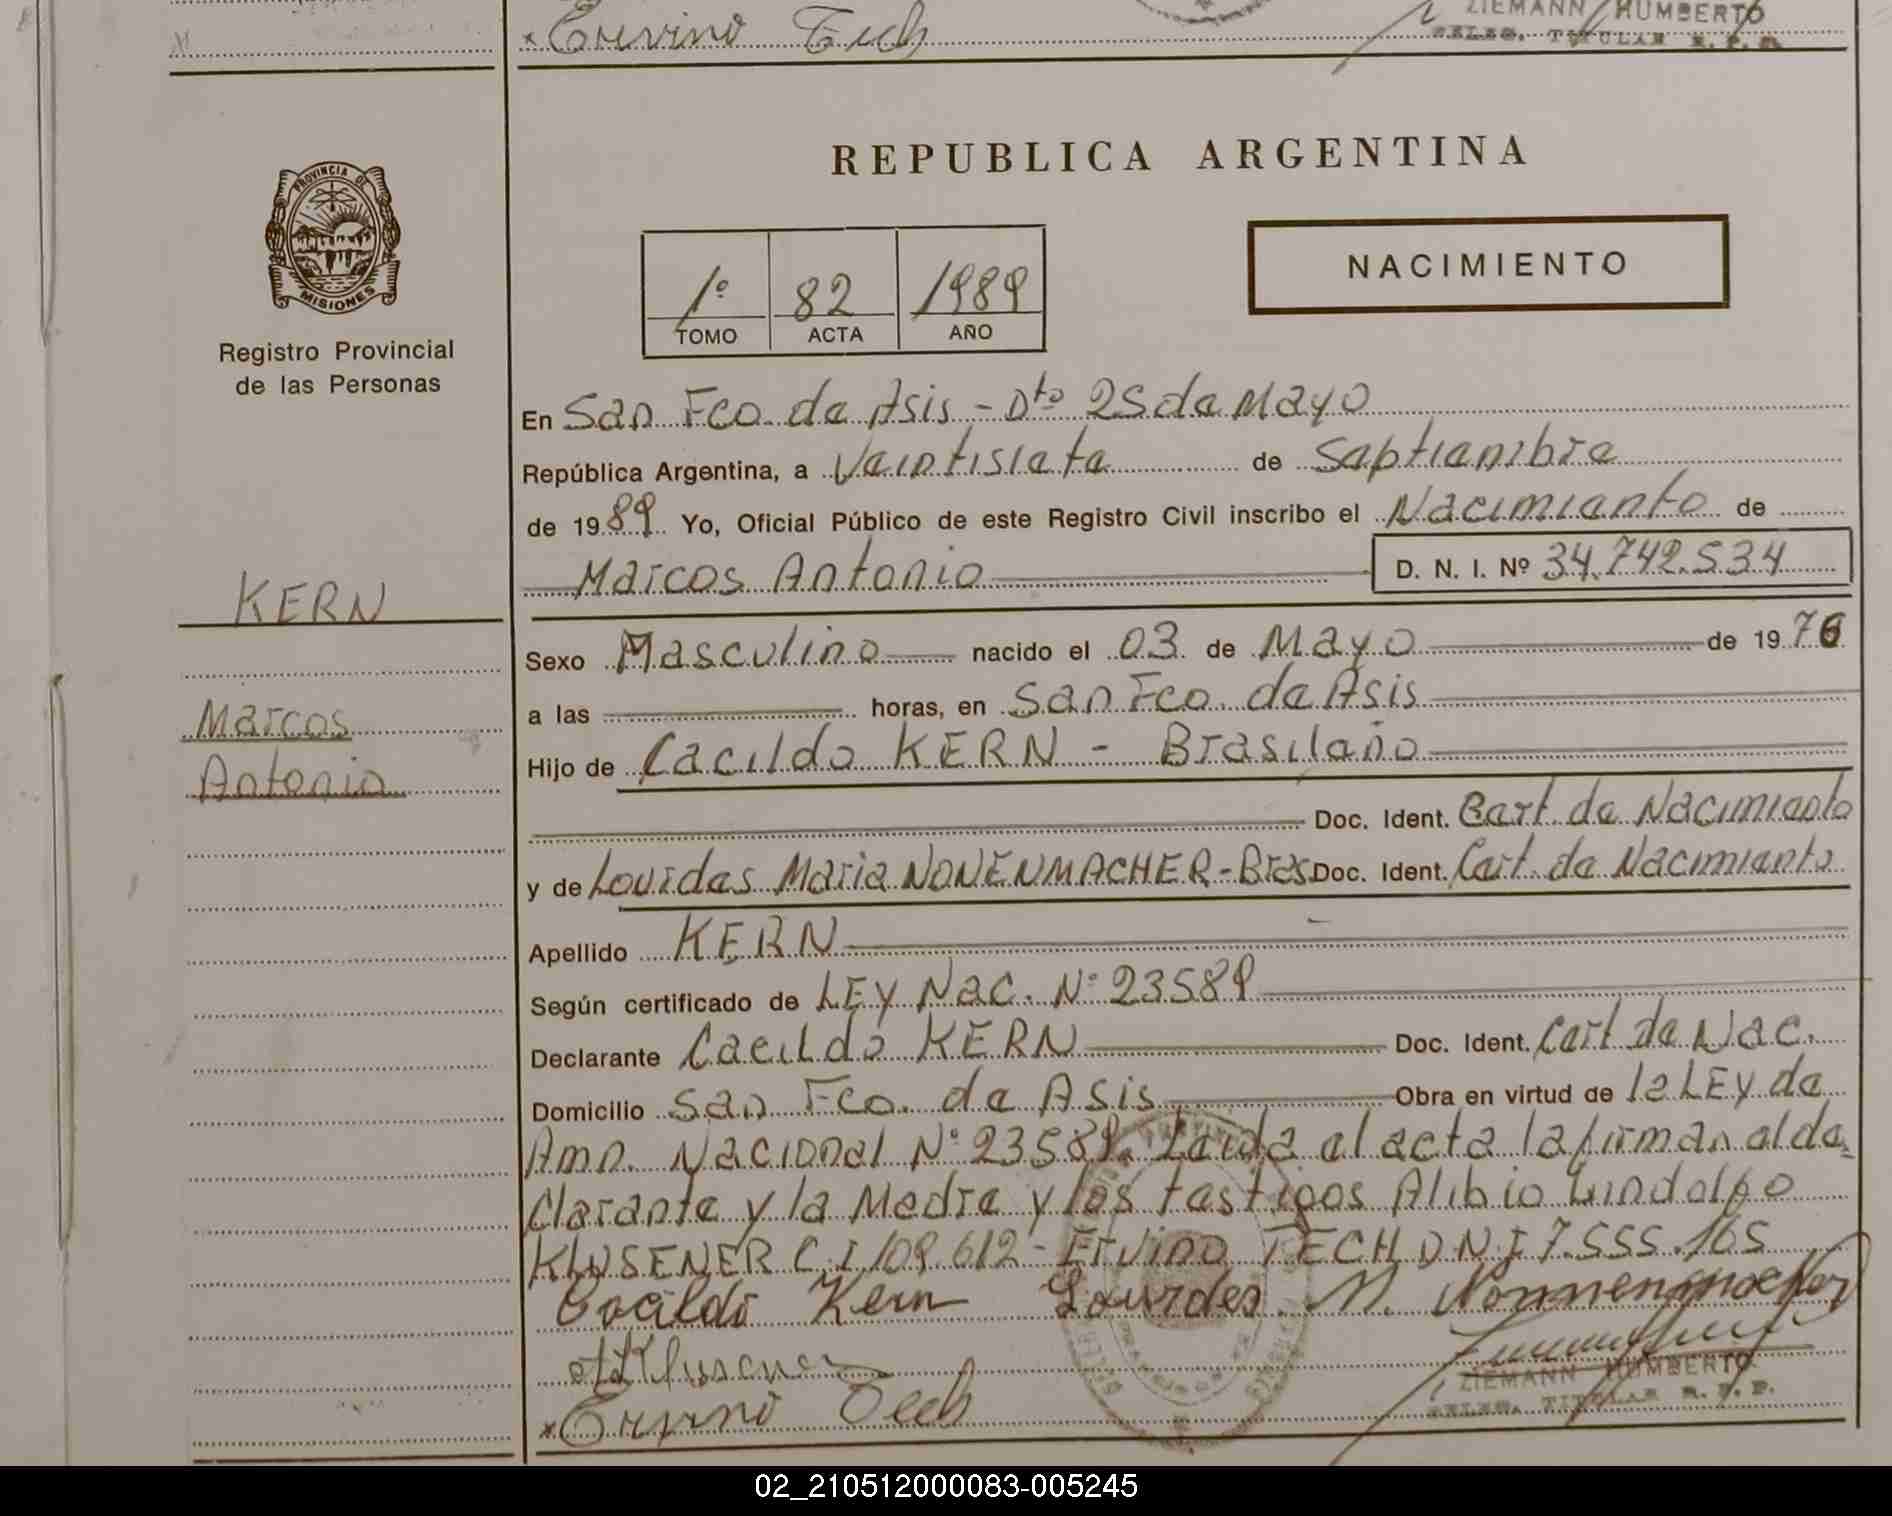 Ervino Tech
ZIEMANN HUMBERTO
DELEG. TITULAR R. P. P.
PROVINCIA DE
MISIONES
Registro Provincial
de las Personas
KERN
Marcos
Antonio
REPUBLICA ARGENTINA
1º 82 1989
TOMO ACTA AÑO
NACIMIENTO
En San Fco. de Asis - Dto 25 de Mayo
República Argentina, a Veintisiete de Septiembre
de 1989 Yo, Oficial Público de este Registro Civil inscribo el Nacimiento de
Marcos Antonio D. N. I. Nº 34.742.534
Sexo Masculino nacido el 03 de Mayo de 1976
a las horas, en San Fco. de Asis
Hijo de Cacildo KERN - Brasileño
Doc. Ident. Cert. de Nacimiento
y de Lourdes Maria NONENMACHER - Bras Doc. Ident. Cert. de Nacimiento
Apellido KERN
Según certificado de LEY Nac. Nº 23589
Declarante Cacildo KERN Doc. Ident. Cert de Nac.
Domicilio San Fco. de Asis Obra en virtud de la LEY de
Amn. Nacional Nº 23589. Leida el acta la firman el de-
clarante y la Madre y los testigos Alibio Lindolfo
KLUSENER C.I 109.612 - Ervino TECH D N I 7.555.165
Cacildo Kern Lourdes M. Nonnenmacher
Klusener
Ervino Tech
ZIEMANN HUMBERTO
DELEG. TITULAR R. P. P.
02_210512000083-005245